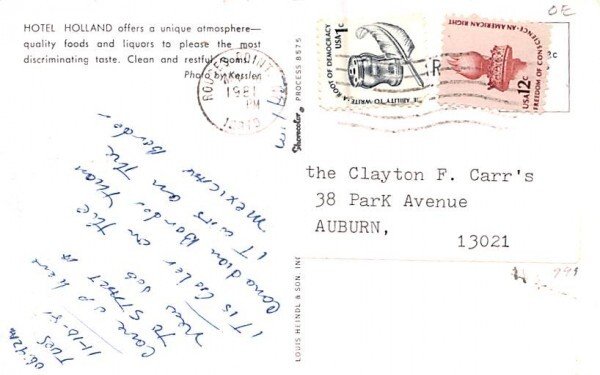 HOTEL HOLLAND offers a unique atmosphere—
quality foods and liquors to please the most
discriminating taste. Clean and restful rooms.
Photo by Kessler
ROUSES POINT
1981
PM
USA 1c
THE ABILITY TO WRITE • A ROOT OF DEMOCRACY
USA 12c
FREEDOM OF CONSCIENCE • AN AMERICAN RIGHT
OE
PROCESS 8575
LOUIS HEINDL & SON, INC
06:42AM
TUES
11-10-81
Came up here
To START A
New Job
IT is Cooler on the
Canadian Border Than
IT was on The
Mexican Border
the Clayton F. Carr's
38 ParK Avenue
AUBURN, 13021